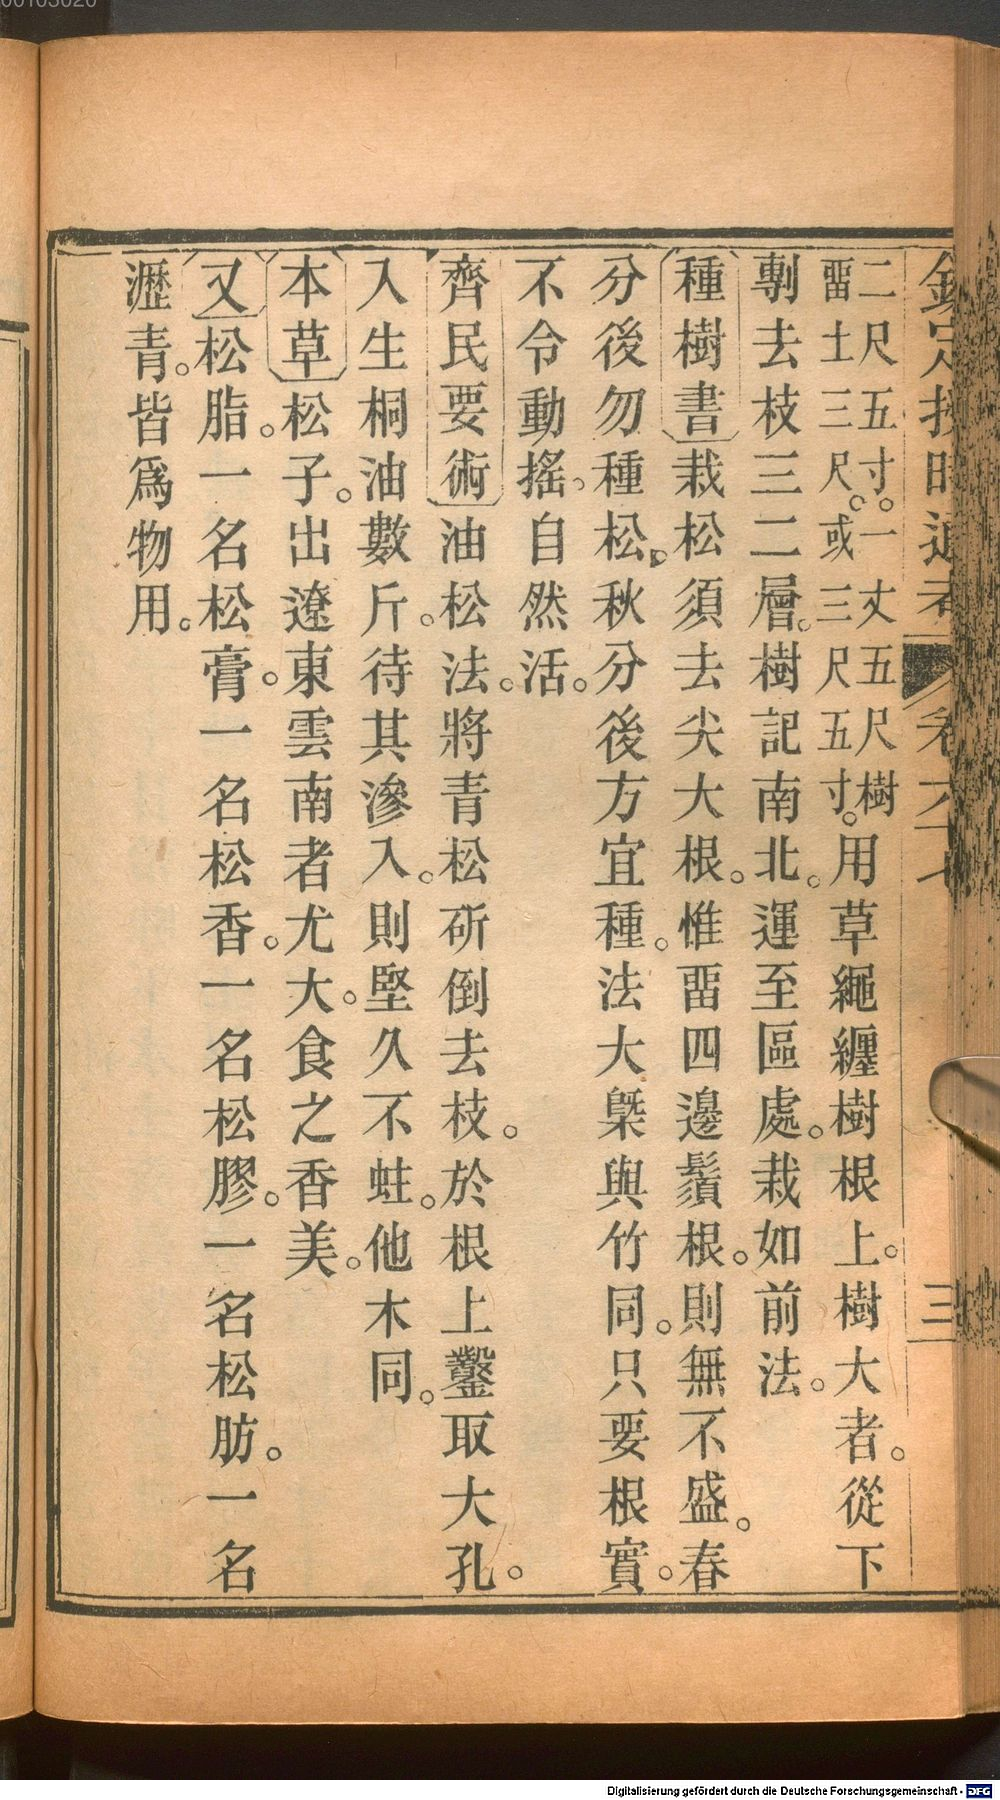 00103020
欽定授時通考 卷六十七 三
二尺五寸。一丈五尺樹
畱土三尺。或三尺五寸。用草繩纏樹根上。樹大者。從下
剸去枝三二層。樹記南北。運至區處。栽如前法。
種樹書栽松須去尖大根。惟畱四邊鬚根。則無不盛。春
分後勿種松。秋分後方宜種。法大槩與竹同。只要根實。
不令動搖。自然活。
齊民要術油松法。將青松斫倒去枝。於根上鑿取大孔。
入生桐油數斤。待其滲入。則堅久不蛀。他木同。
本草松子。出遼東雲南者尤大。食之香美。
又松脂。一名松膏。一名松香。一名松膠。一名松肪。一名
瀝青。皆爲物用。
Digitalisierung gefördert durch die Deutsche Forschungsgemeinschaft - DFG